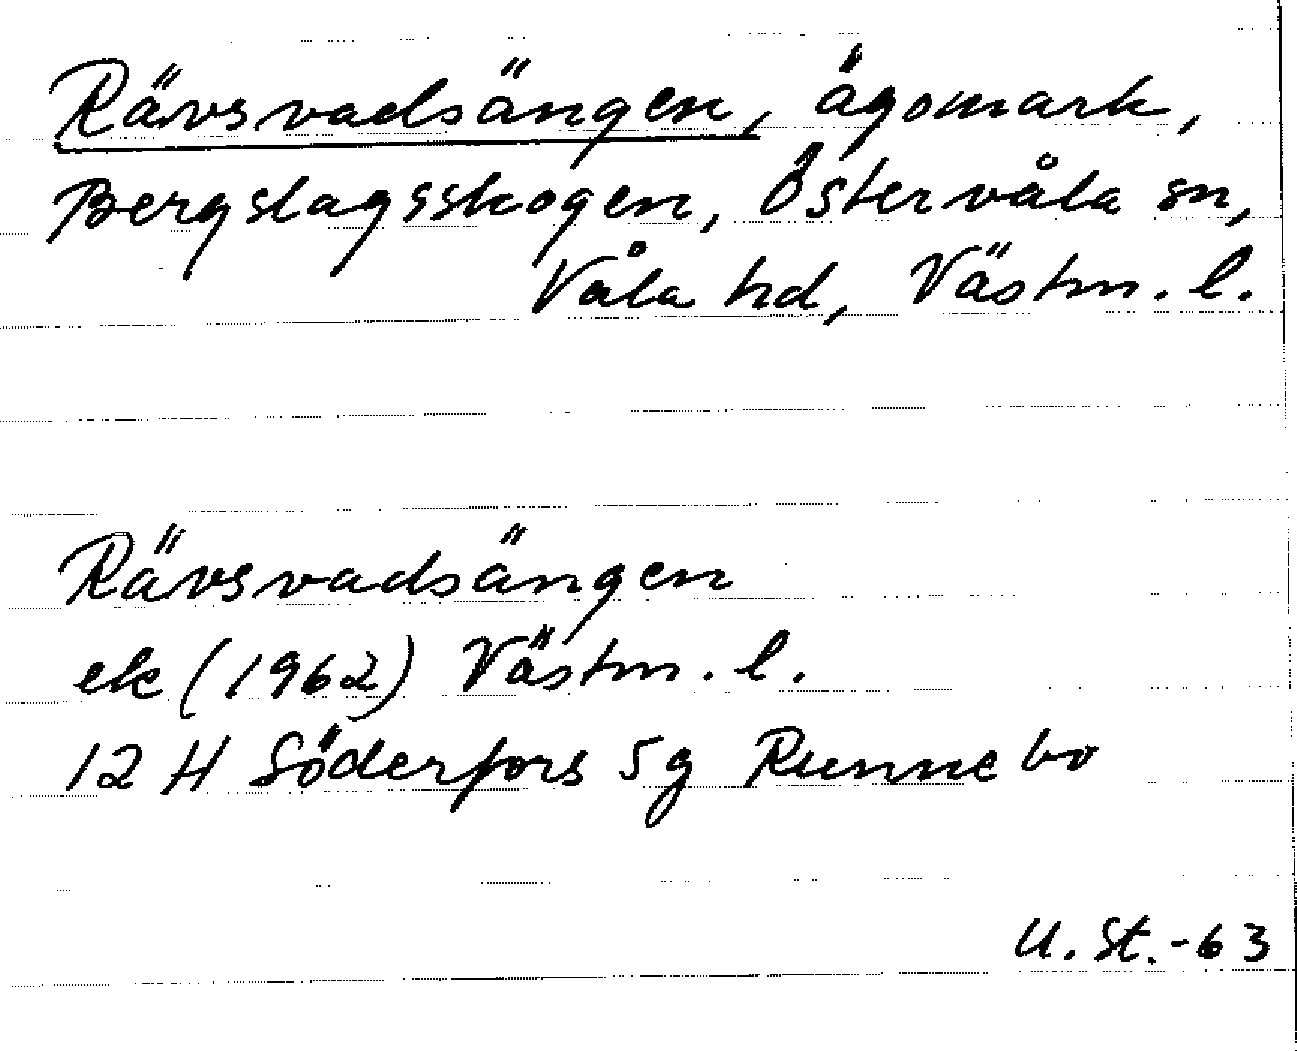 Rävsvadsängen, ägomark,
Bergslagsskogen, Östervåla sn,
Våla hd, Västm. l.
Rävsvadsängen
ek (1962) Västm. l.
12 H Söderfors 5g Runnebo
U. St. -63